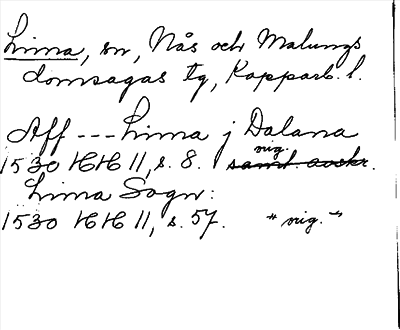 Lima, sn, Nås och Malungs
domsagas tg, Kopparb. l.
Aff --- Lima j Dalana
1530 HH 11, s. 8. samt. avskr. orig.
Lima Sogn:
1530 HH 11, s. 57. " orig. "